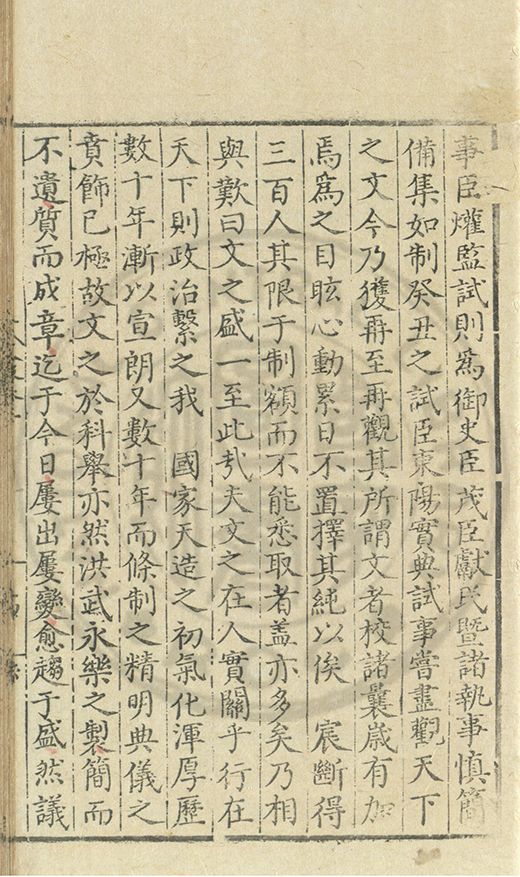 事臣爟監試則爲御史臣茂臣獻民暨諸執事慎簡
備集如制癸丑之試臣東陽實典試事嘗盡觀天下
之文今乃獲再至再觀其所謂文者校諸曩歳有加
焉爲之目眩心動累日不置擇其純以俟　宸斷得
三百人其限于制額而不能悉取者盖亦多矣乃相
與歎曰文之盛一至此㢤夫文之在人實關乎行在
天下則政治繫之我　國家天造之初氣化渾厚歷
數十年漸以宣朗又數十年而條制之精明典儀之
賁飾已極故文之於科舉亦然洪武永樂之製簡而
不遺質而成章迄于今日屢出屢變愈趨于盛然議